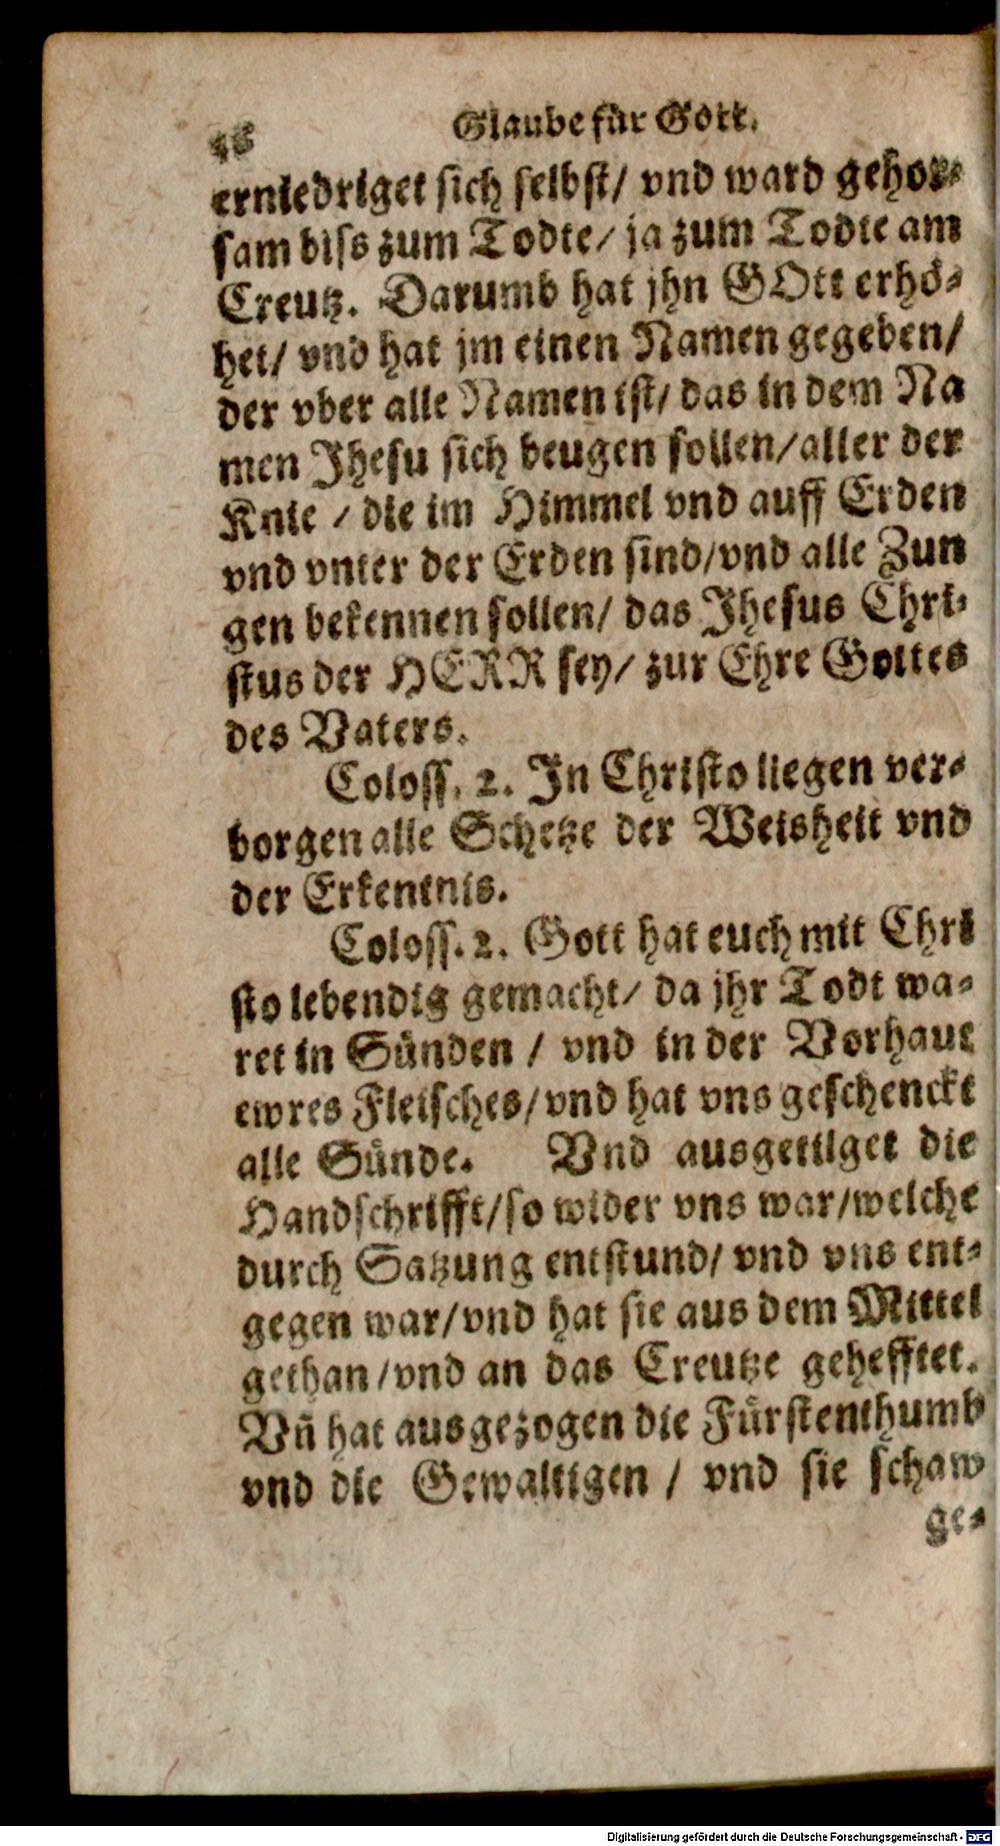 Glaube für Gott.
erniedriget sich selbst/ vnd ward gehor-
sam biss zum Todte/ ja zum Todte am
Creutz. Darumb hat jhn GOtt erhö-
het/ vnd hat jm einen Namen gegeben/
der vber alle Namen ist/ das in dem Na
men Jhesu sich beugen sollen/ aller der
Knie / die im Himmel vnd auff Erden
vnd vnter der Erden sind/ vnd alle Zun
gen bekennen sollen/ das Jhesus Chri-
stus der HERR sey/ zur Ehre Gottes
des Vaters.
Coloss. 2. In Christo liegen ver-
borgen alle Schetze der Weisheit vnd
der Erkentnis.
Coloss. 2. Gott hat euch mit Chri
sto lebendig gemacht/ da jhr Todt wa-
ret in Sünden / vnd in der Vorhaut
ewres Fleisches/ vnd hat vns geschenckt
alle Sünde. Vnd ausgetilget die
Handschrifft/ so wider vns war/ welche
durch Satzung entstund/ vnd vns ent-
gegen war/ vnd hat sie aus dem Mittel
gethan/ vnd an das Creutze gehefftet.
Vñ hat ausgezogen die Fürstenthumb
vnd die Gewaltigen / vnd sie schaw
ge-
Digitalisierung gefördert durch die Deutsche Forschungsgemeinschaft - DFG